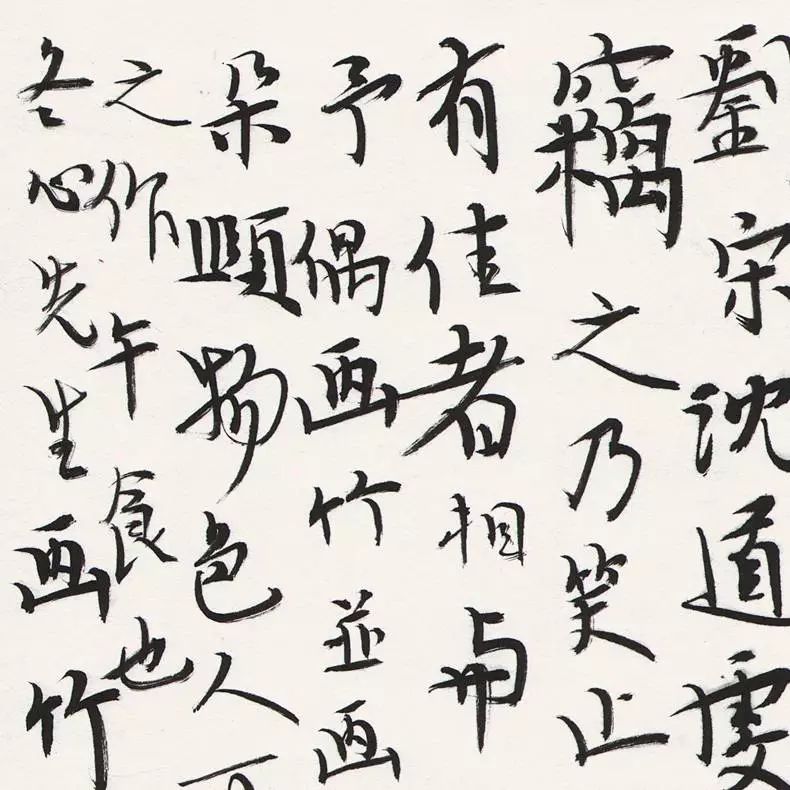 劉宋沈道虔
竊之乃笑止
有佳者相与
予偶画竹並画
朵頤物色人
之作午食也
冬心先生画竹